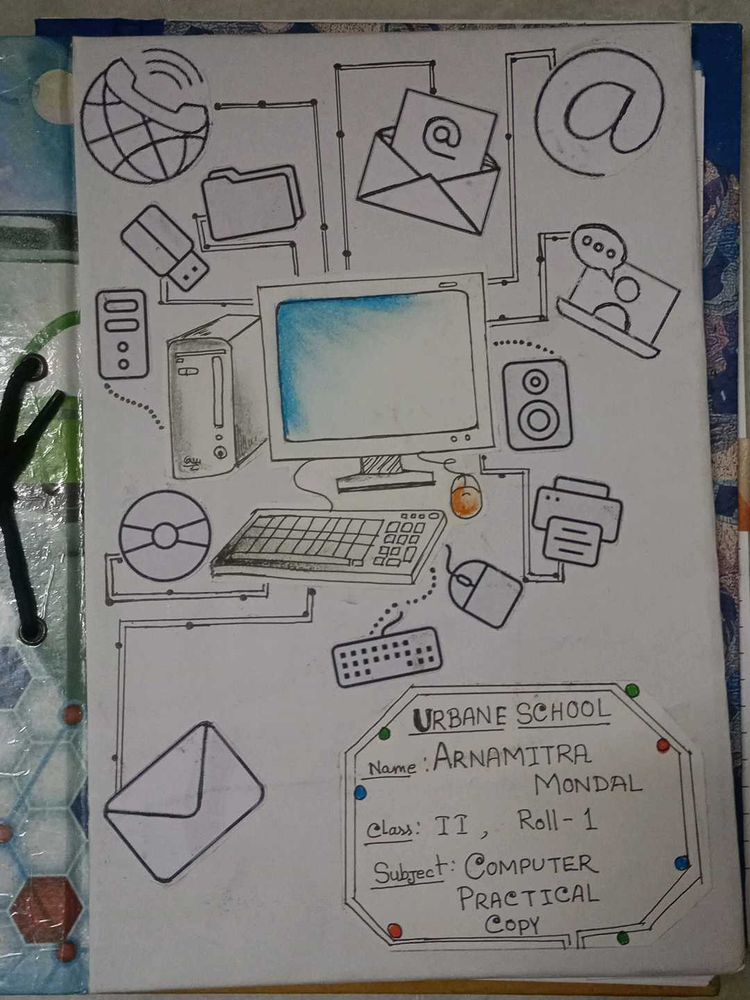 @
@
URBANE SCHOOL
Name: ARNAMITRA
MONDAL
Class: II, Roll-1
Subject: COMPUTER
PRACTICAL
COPY